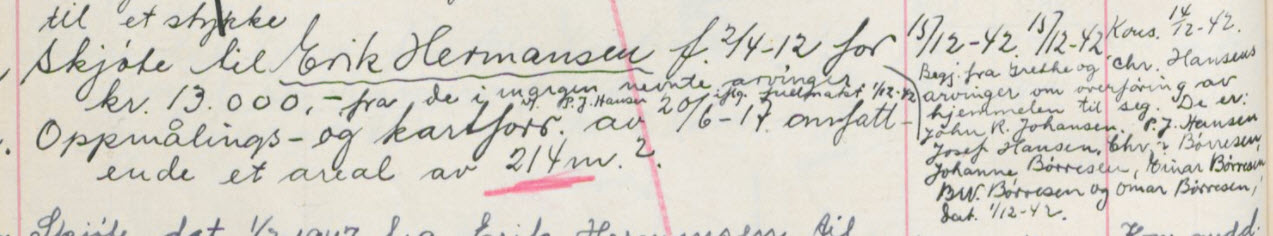 til et stykke
Skjøte til Erik Hermansen f. 2/4-12 for
kr. 13.000,- fra de i margen nevnte arvinger
v/ P. J. Hansen iflg. fullmakt 1/12-42
Oppmålings- og kartforr. av 20/6-17 omfatt-
ende et areal av 214 m.2.
Skjøte dat. 1/2 1947 fra Erik Hermansen til
15/12-42 15/12-42 Kons. 14/12-42.
Begj. fra Grethe og Chr. Hansens
arvinger om overføring av
hjemmelen til seg. De er:
John R. Johansen, P. J. Hansen
Josef Hansen, Chr. Børresen,
Johanne Børresen, Einar Børresen
Børresen og Omar Børresen,
dat. 1/12-42.